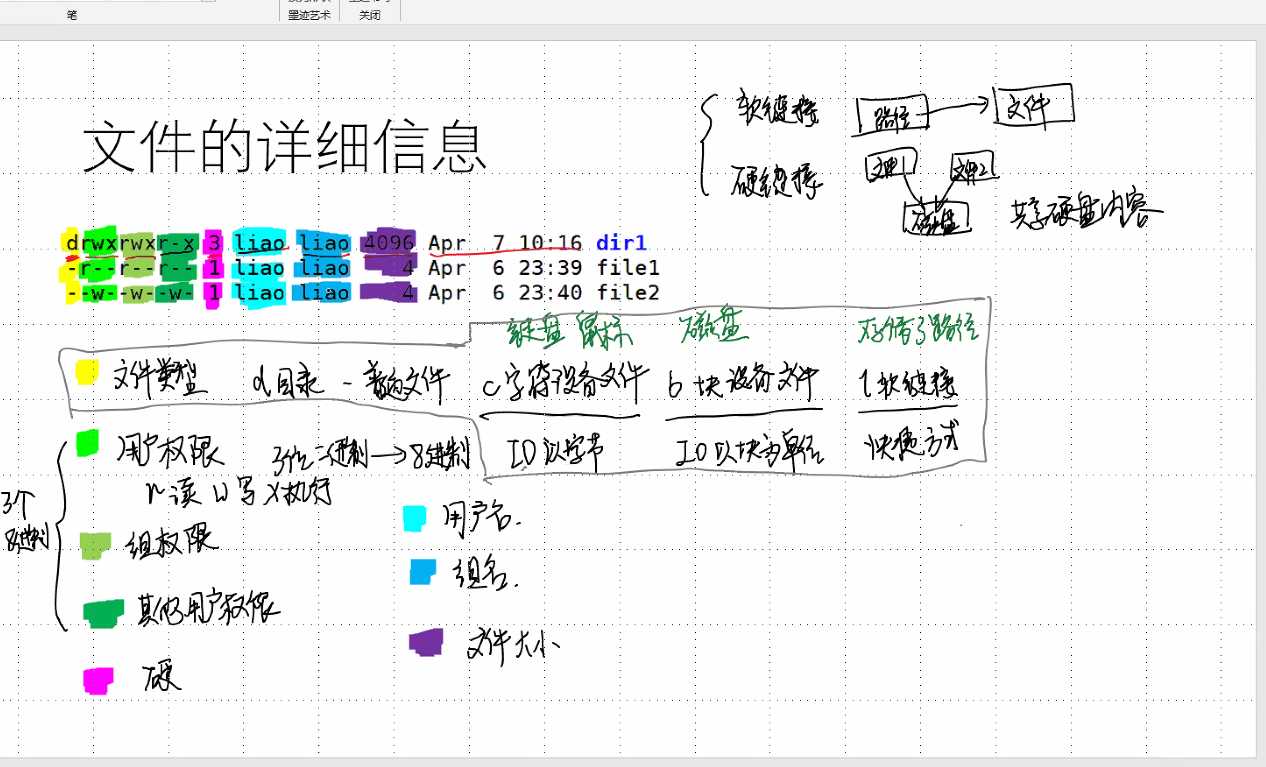 笔
墨迹艺术
关闭
文件的详细信息
软链接 路径 文件
硬链接 文件1 文件2
磁盘 共享硬盘内容
drwxrwxr-x 3 liao liao 4096 Apr 7 10:16 dir1
-r--r--r-- 1 liao liao 4 Apr 6 23:39 file1
--w--w--w- 1 liao liao 4 Apr 6 23:40 file2
键盘 鼠标 磁盘 存储了路径
文件类型 d目录 - 普通文件 c字符设备文件 b 块设备文件 l 软链接
IO以字节 IO以块为单位 快捷方式
用户权限 3位二进制→8进制
r读 w写 x执行
3个
8进制
组权限
其他用户权限
硬
用户名.
组名.
文件大小